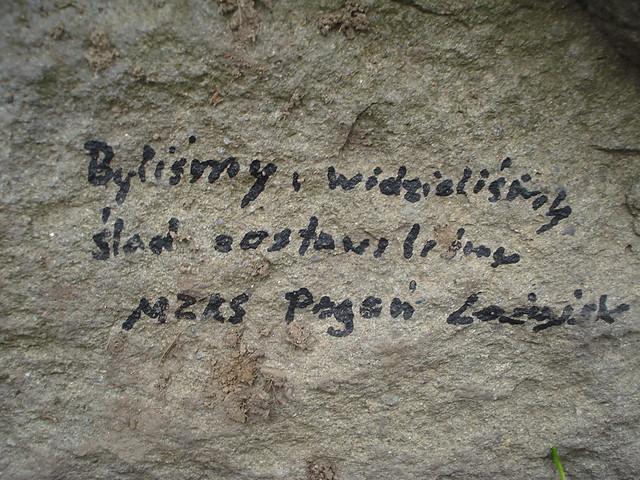 Byliśmy, widzieliśmy
ślad zostawiliśmy
MZKS Pogoń